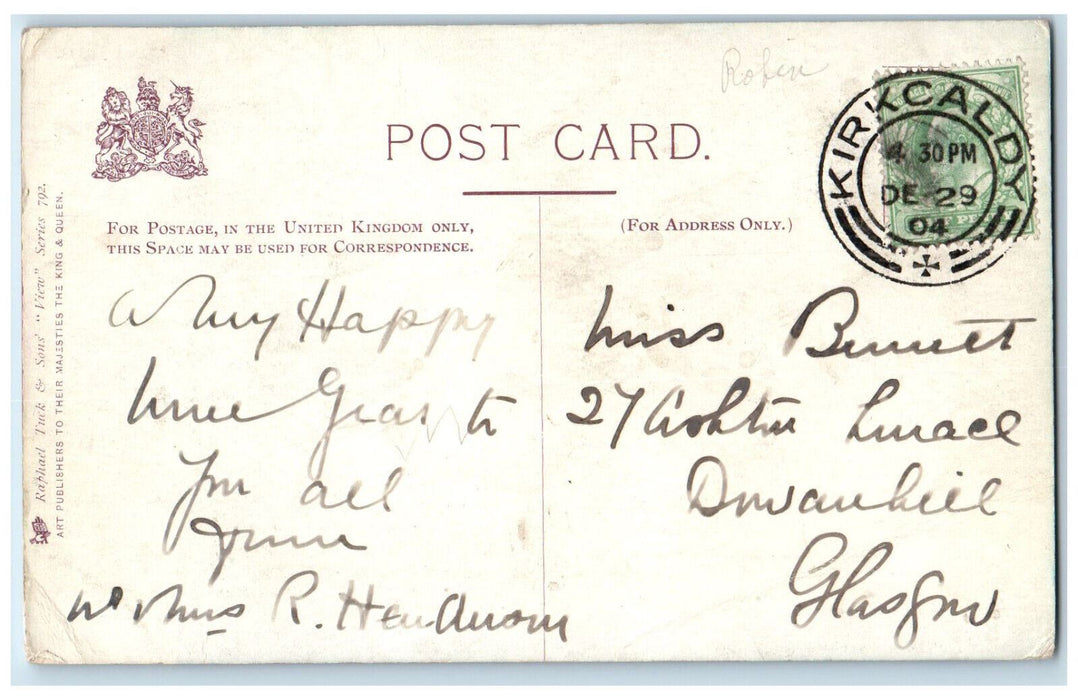 Robin
POST CARD.
KIRKCALDY
4 30 PM
DE 29
04
FOR POSTAGE, IN THE UNITED KINGDOM ONLY,
THIS SPACE MAY BE USED FOR CORRESPONDENCE.
(FOR ADDRESS ONLY.)
Raphael Tuck & Sons' "View" Series 792.
ART PUBLISHERS TO THEIR MAJESTIES THE KING & QUEEN.
A Very Happy
New Year to
you all
from
Mr & Mrs R. Henderson
Miss Bennett
27 Ashton Terrace
Dowanhill
Glasgow